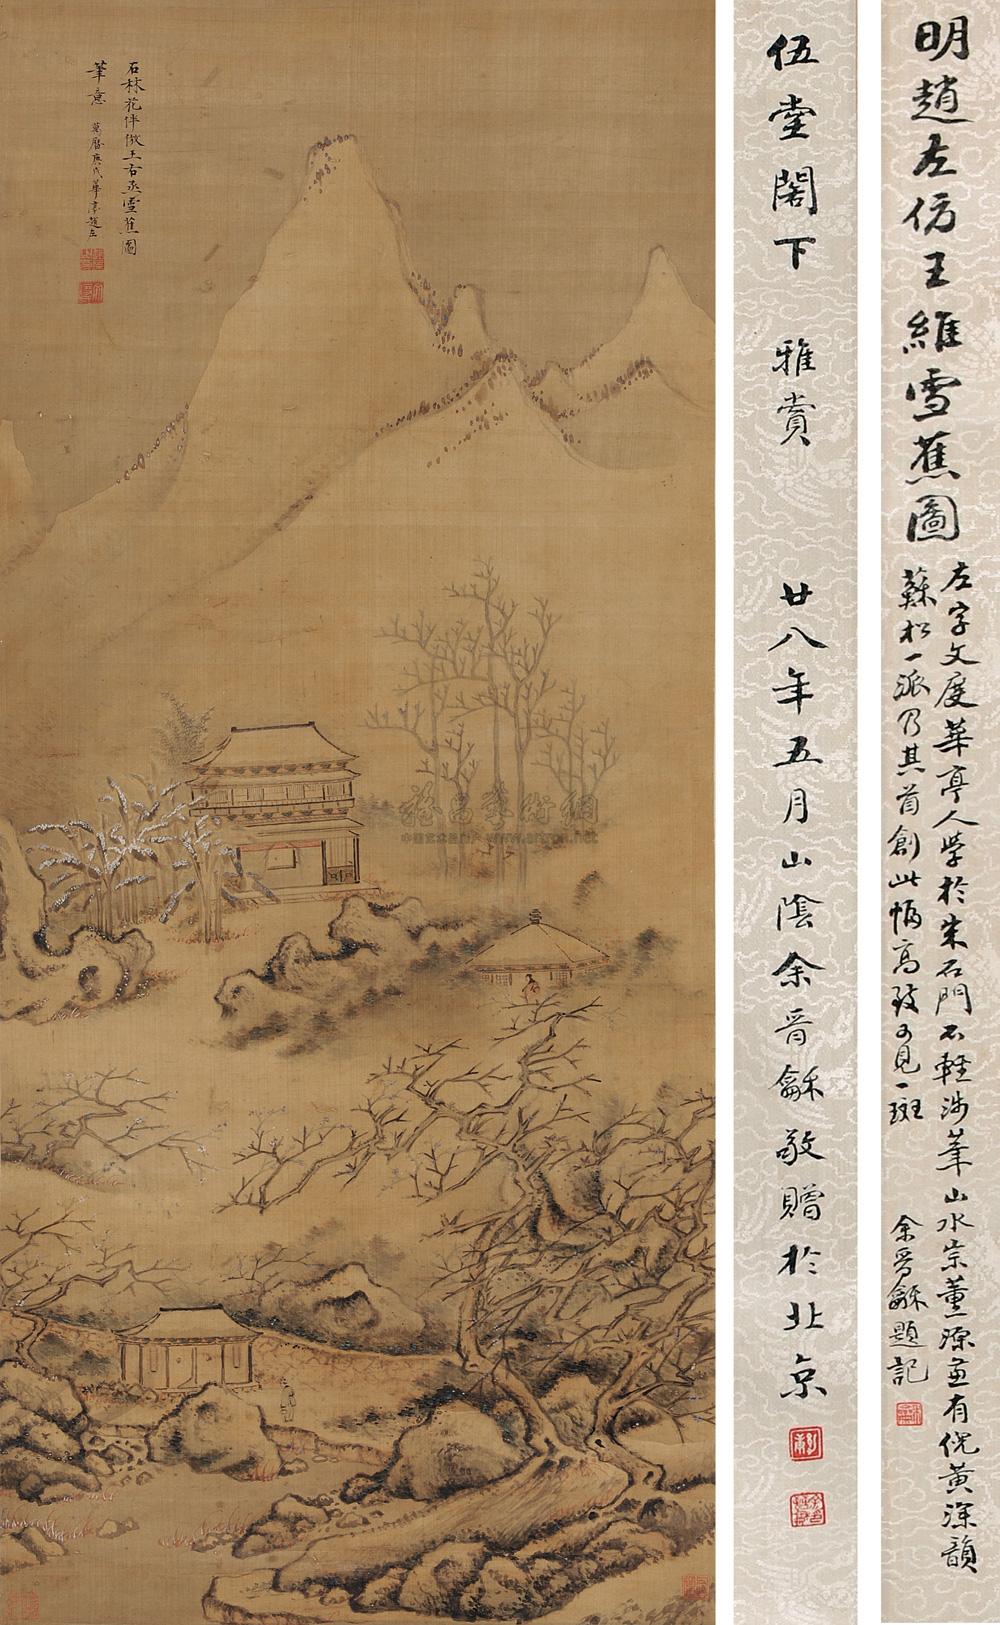 明趙左仿王維雪蕉圖
左字文度華亭人學於朱石門不輕涉筆山水宗董源兼有倪黃深韻
蘇松一派乃其首創此幀高致可見一斑
余晉龢題記
伍堂閣下 雅賞 廿八年五月山陰余晉龢敬贈於北京
石林花伴倣王右丞雪蕉圖
筆意 萬曆庚戌華亭趙左
www.artron.net